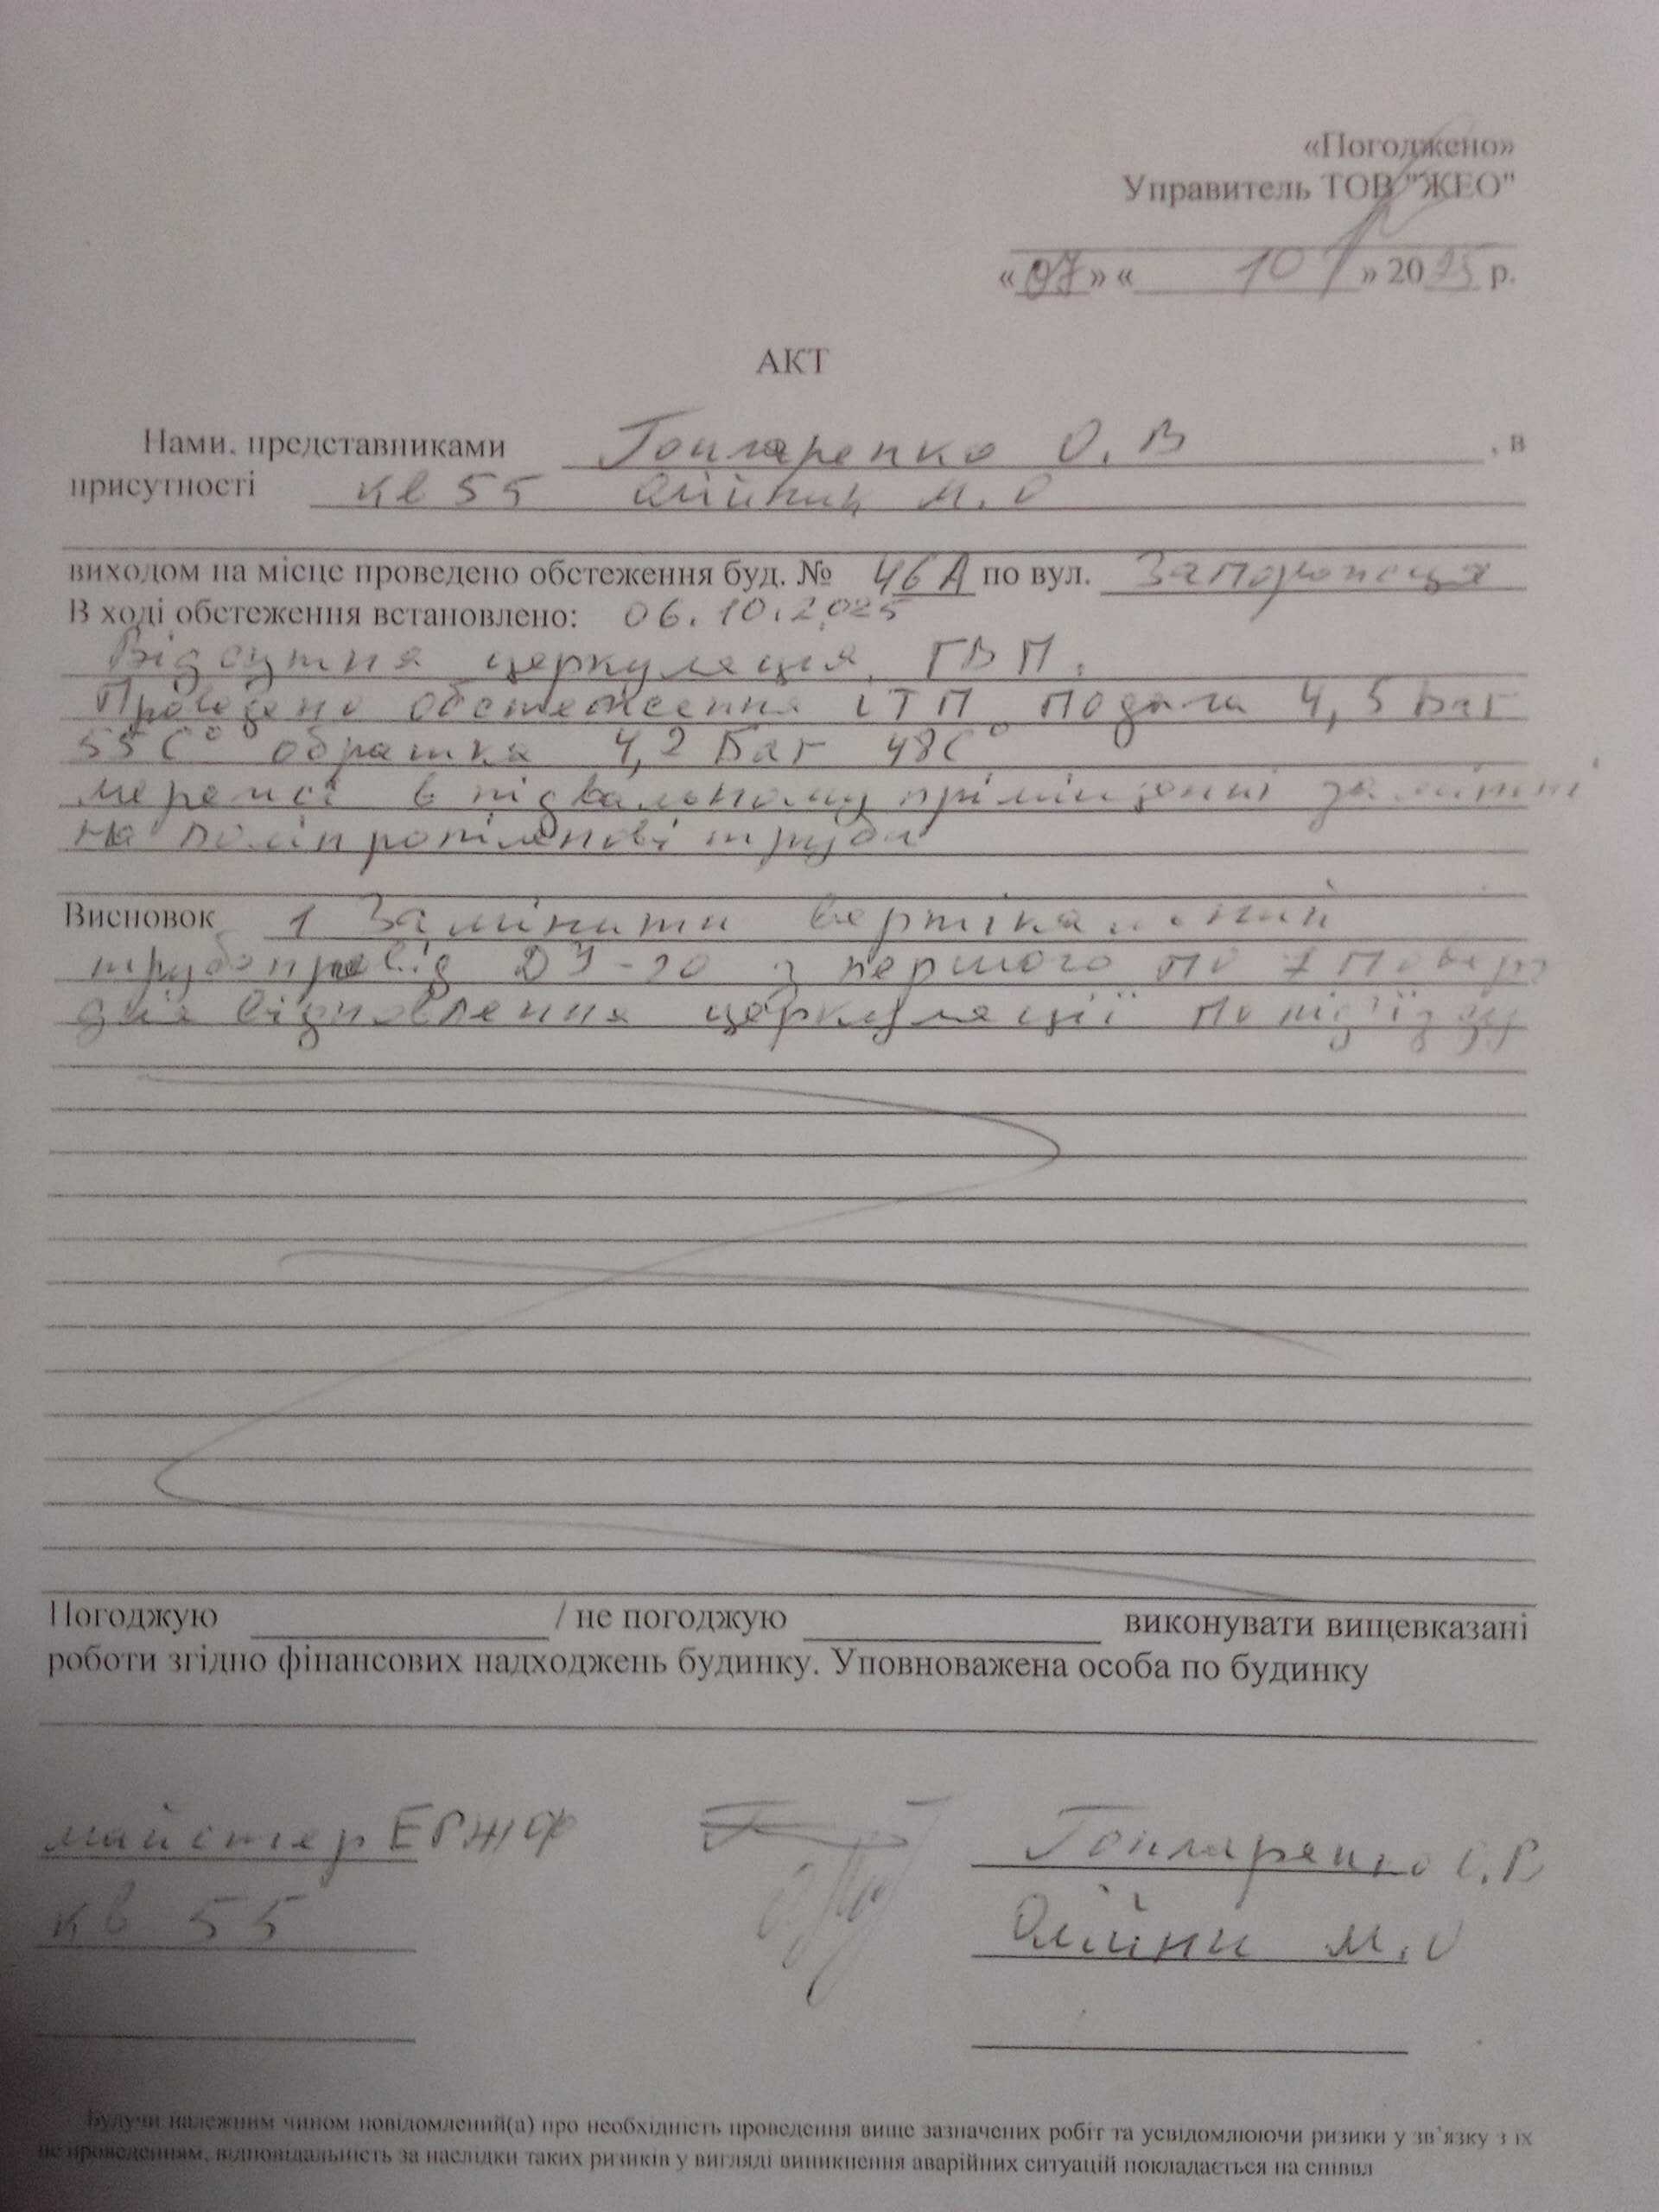 «Погоджено»
Управитель ТОВ "ЖЕО"
«07» « 10 » 2025 р.
АКТ
Нами, представниками Гончаренко О. В , в
присутності кв 55 Олійник М. О
виходом на місце проведено обстеження буд. № 46А по вул.
В ході обстеження встановлено: 06.10.2025
Відсутня церкуляція, ГВП.
Проведено обстеження ІТП Подача 4,5 Баг
55 С° обратка 4,2 Баг 48С°
мережі в підвальному приміщенні замінені
на поліпропіленові труби
Висновок 1 Замінити вертікальний
трубопровід ДУ-20 з першого по 7 Поверх
для відновлення церкуляції По під'їзду
Погоджую / не погоджую виконувати вищевказані
роботи згідно фінансових надходжень будинку. Уповноважена особа по будинку
майстер ЕРЖФ Гончаренко О.В
кв 55 Олійни М.О
Будучи належним чином повідомлений(а) про необхідність проведення вище зазначених робіт та усвідомлюючи ризики у зв'язку з їх
не проведенням, відповідальність за наслідки таких ризиків у вигляді виникнення аварійних ситуацій покладається на співвл